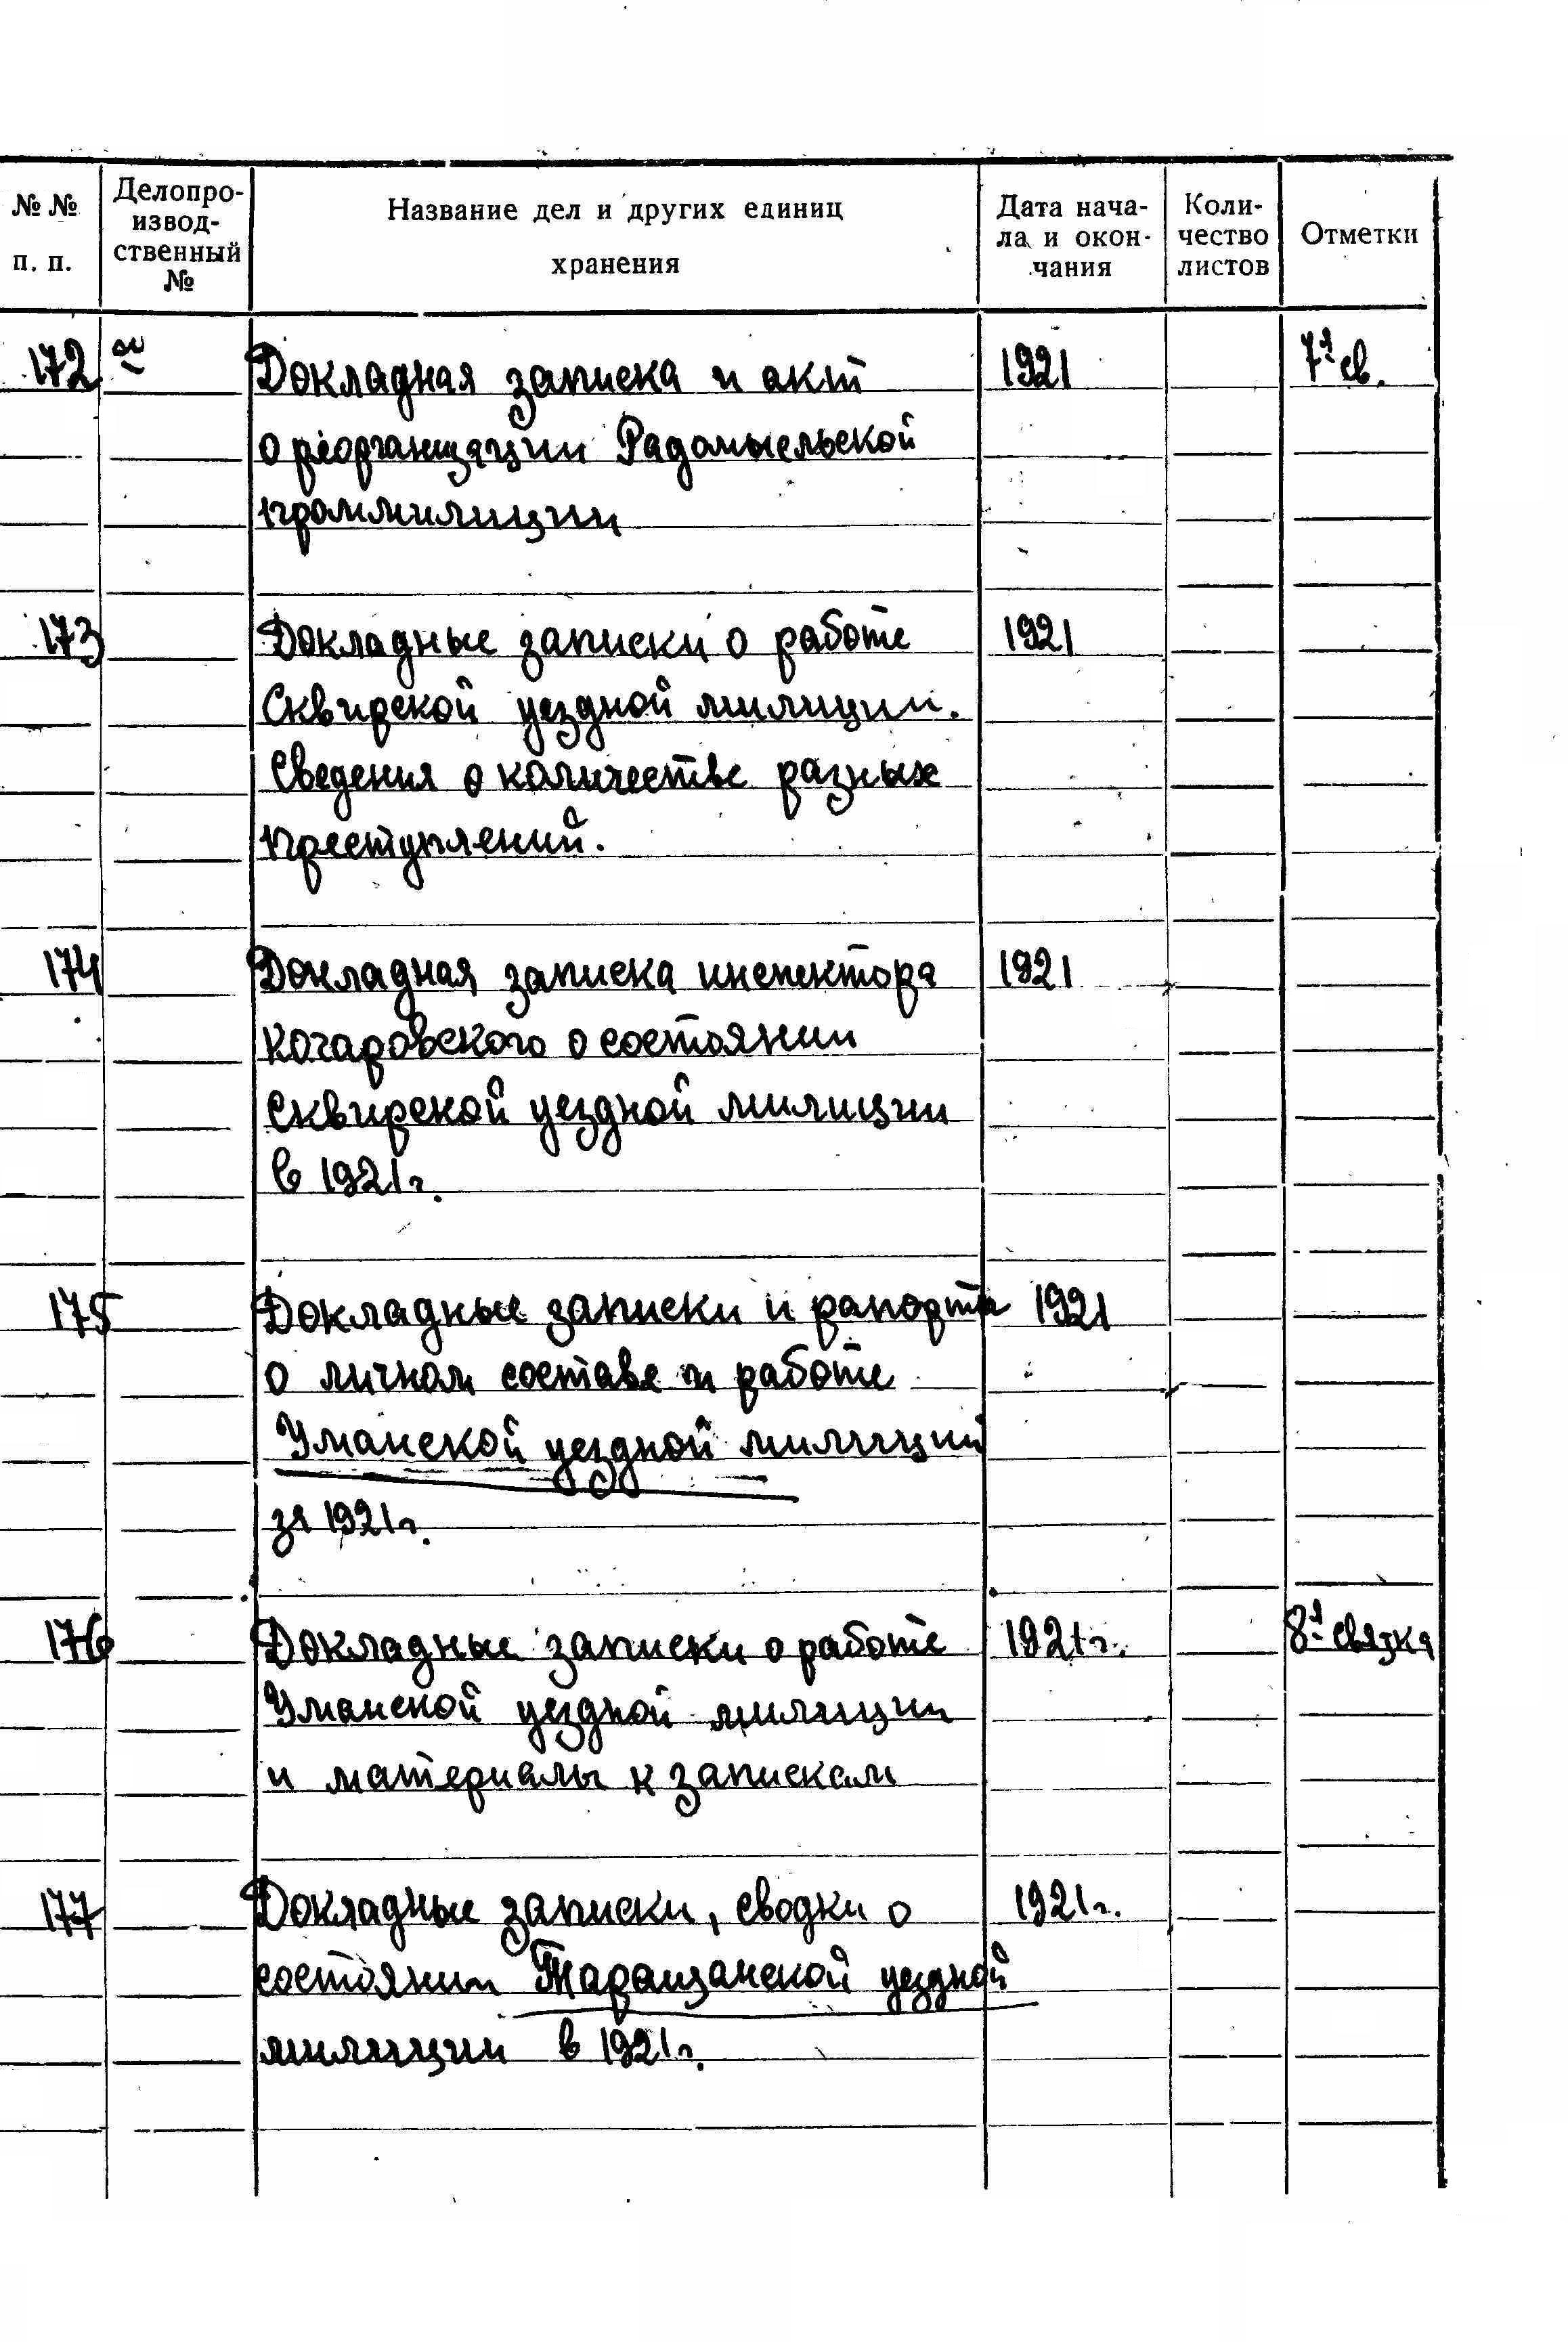 № № п. п.
Делопро-
извод-
ственный
№
Название дел и других единиц
хранения
Дата нача-
ла и окон-
чания
Коли-
чество
листов
Отметки
172 Докладная записка и акт 1921 7я св.
о реорганизации Радомысльской
проммилиции
173 Докладные записки о работе 1921
Сквирской уездной милиции.
Сведения о количестве разных
преступлений.
174 Докладная записка инспектора 1921
Кочаровского о состоянии
Сквирской уездной милиции
в 1921г.
175 Докладные записки и рапорта 1921
о личном составе и работе
Уманской уездной милиции
за 1921г.
176 Докладные записки о работе 1921г. 8я связка
Уманской уездной милиции
и материалы к запискам
177 Докладные записки, сводки о 1921г.
состоянии Таращанской уездной
милиции в 1921г.